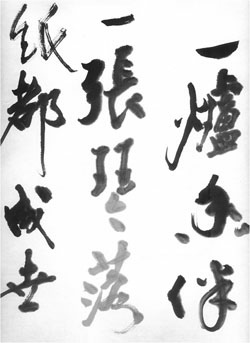 一爐香伴
一張琴落
紙都成世